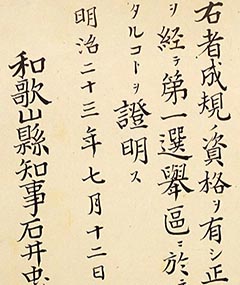 右者成規ノ資格ヲ有シ正
ヲ経テ第一選擧區ニ於テ
タルコトヲ證明ス
明治二十三年七月十二日
和歌山縣知事石井忠